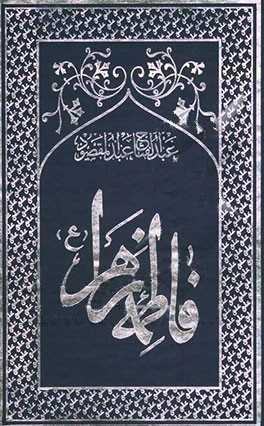 عبدالفتاح عبدالمقصود
فاطمه زهرا (ع)